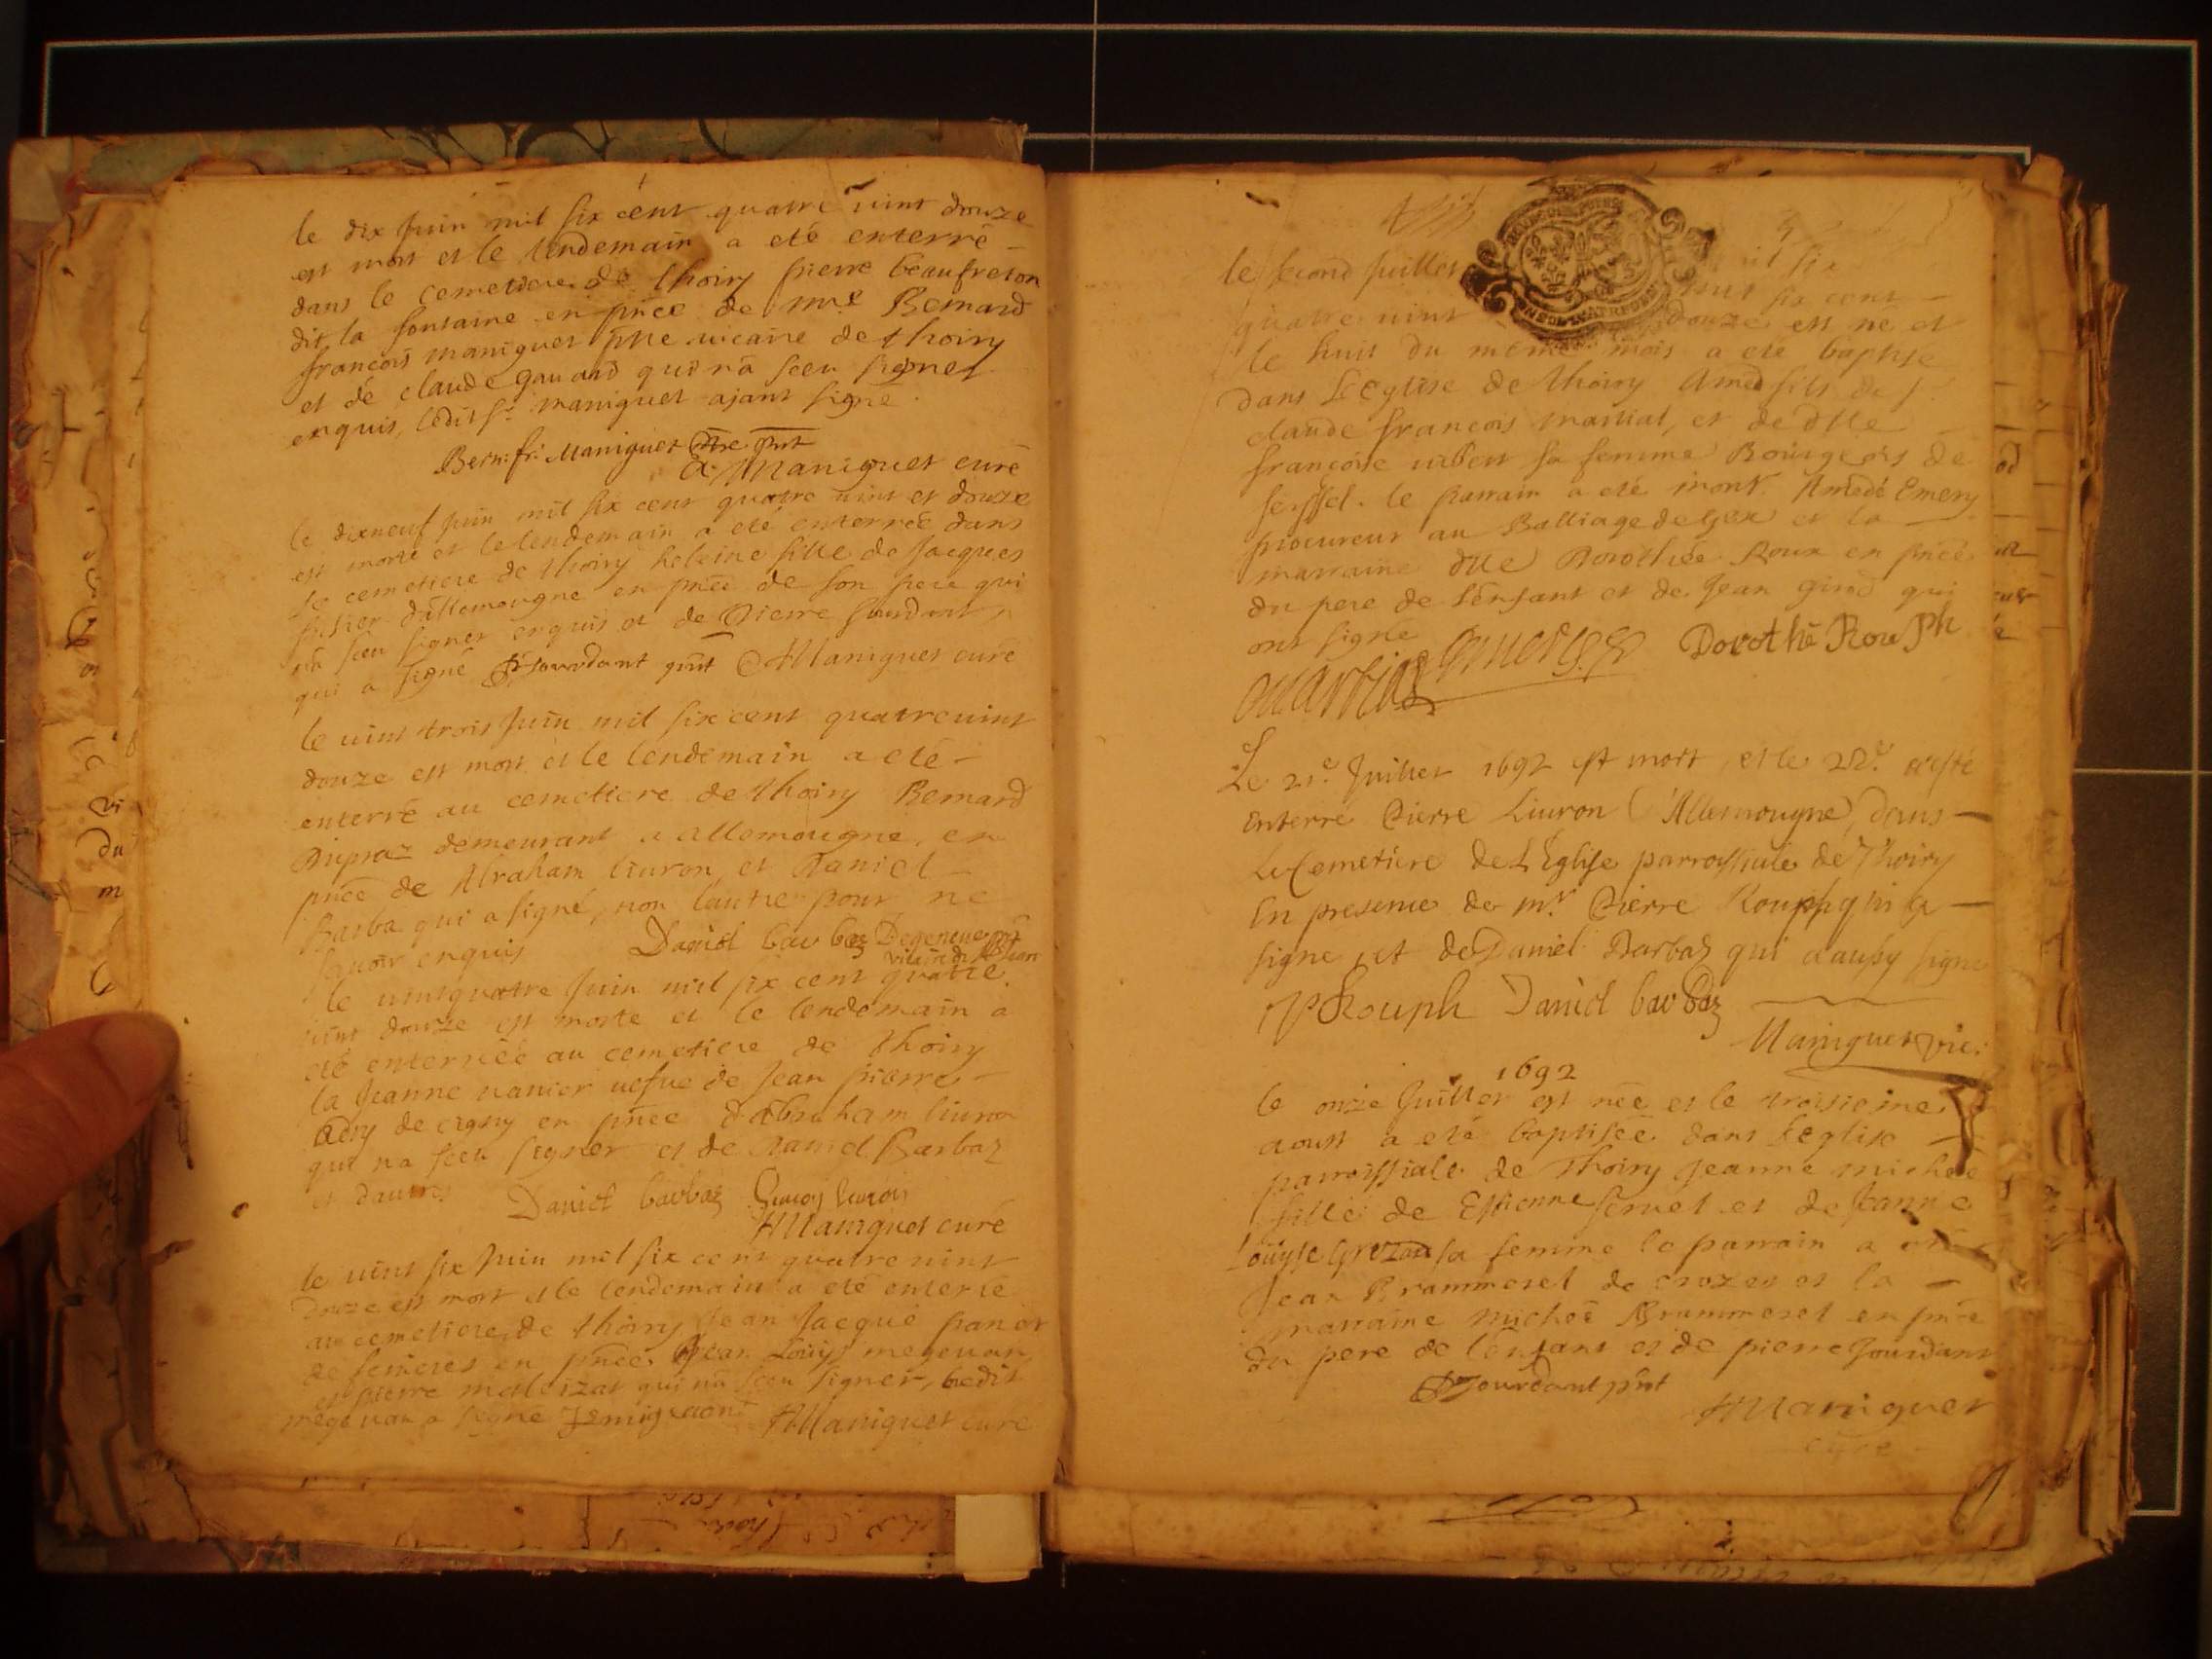 le dix Juin mil six cent quatre uint douze
est mort et le lendemain a eté enterré
dans le cemetiere de thoiry pierre beaufreton
dit la fontaine en pñce de mre Bernard
francois maniguet vicaire de thoiry
et de claude gauard qui n'a sceu signer
enquis, ledit sr maniguet ajant signé.
Bern: fr: Maniguet pñt
A: Maniguet curé
le dixneuf juin mil six cent quatre uint et douze
est morte et le lendemain a eté enterrée dans
le cemetiere de thoiry heleine fille de Jacques
d'allemougne en pñce de son pere qui
n'a sceu signer enquis et de Pierre Jourdant
qui a signé P Jourdant pñt AManiguet curé
le uint trois Juin mil six cent quatreuint
douze est mort et le lendemain a eté
enterré au cemetiere de thoiry Bernard
Dupraz demeurant a allemougne, en
pñce de Abraham liuron et Daniel
Barba qui a signé, non l'autre pour ne
sçauoir enquis Daniel barbaz
le uintquatre Juin mil six cent quatre
uint douze est morte et le lendemain a
eté enterrée au cemetiere de thoiry
la Jeanne uefue de Jean pierre
de en pñce d'abraham liuron
qui n'a sceu signer et de Daniel Barbaz
et d'autres Daniel barbaz
AManiguet curé
le uint six Juin mil six cent quatre uint
douze est mort et le lendemain a eté enterré
au cemetiere de thoiry Jean Jacque
de en pñce Jean Louys megeuan
et pierre qui n'a sceu signer, ledit
megeuan a signé AManiguet curé
le second Juillet mil six
mil six cent
quatre uint douze est né et
le huit du même mois a eté baptisé
dans L'Eglise de thoiry Amed fils de s.
claude francois martial, et de dlle
françoise sa femme Bourgeois de
seyssel. le parrain a eté monr. Amedé Emery
procureur au Balliage de Gex et la
marraine dlle Dorothée Roux en pñce
du pere de l'enfant et de Jean girod qui
ont signé Dorothé RouPh
Martial
Le 21e Juillet 1692 est mort, et le 22e. a esté
Enterré Pierre Liuron d'Allemougne, dans
Le Cemetiere de L'Eglise parrossiale de Thoiry
En presence de mr Pierre Rouph qui a
signé, et de Daniel Barbaz qui a aussy signé
P Rouph Daniel barbaz
Maniguet vic:
1692
le onze Juillet est née et le troisieme
aoust a eté baptisée dans l'eglise
parroissiale de Thoiry Jeanne michee
fille de Estienne seruet et de Jeanne
Louyse sa femme le parrain a eté
Jean Brammerel de crozet et la
marraine michee Brammerel en pñce
du pere de l'enfant et de pierre Jourdant
P Jourdant pñt
AManiguet
curé